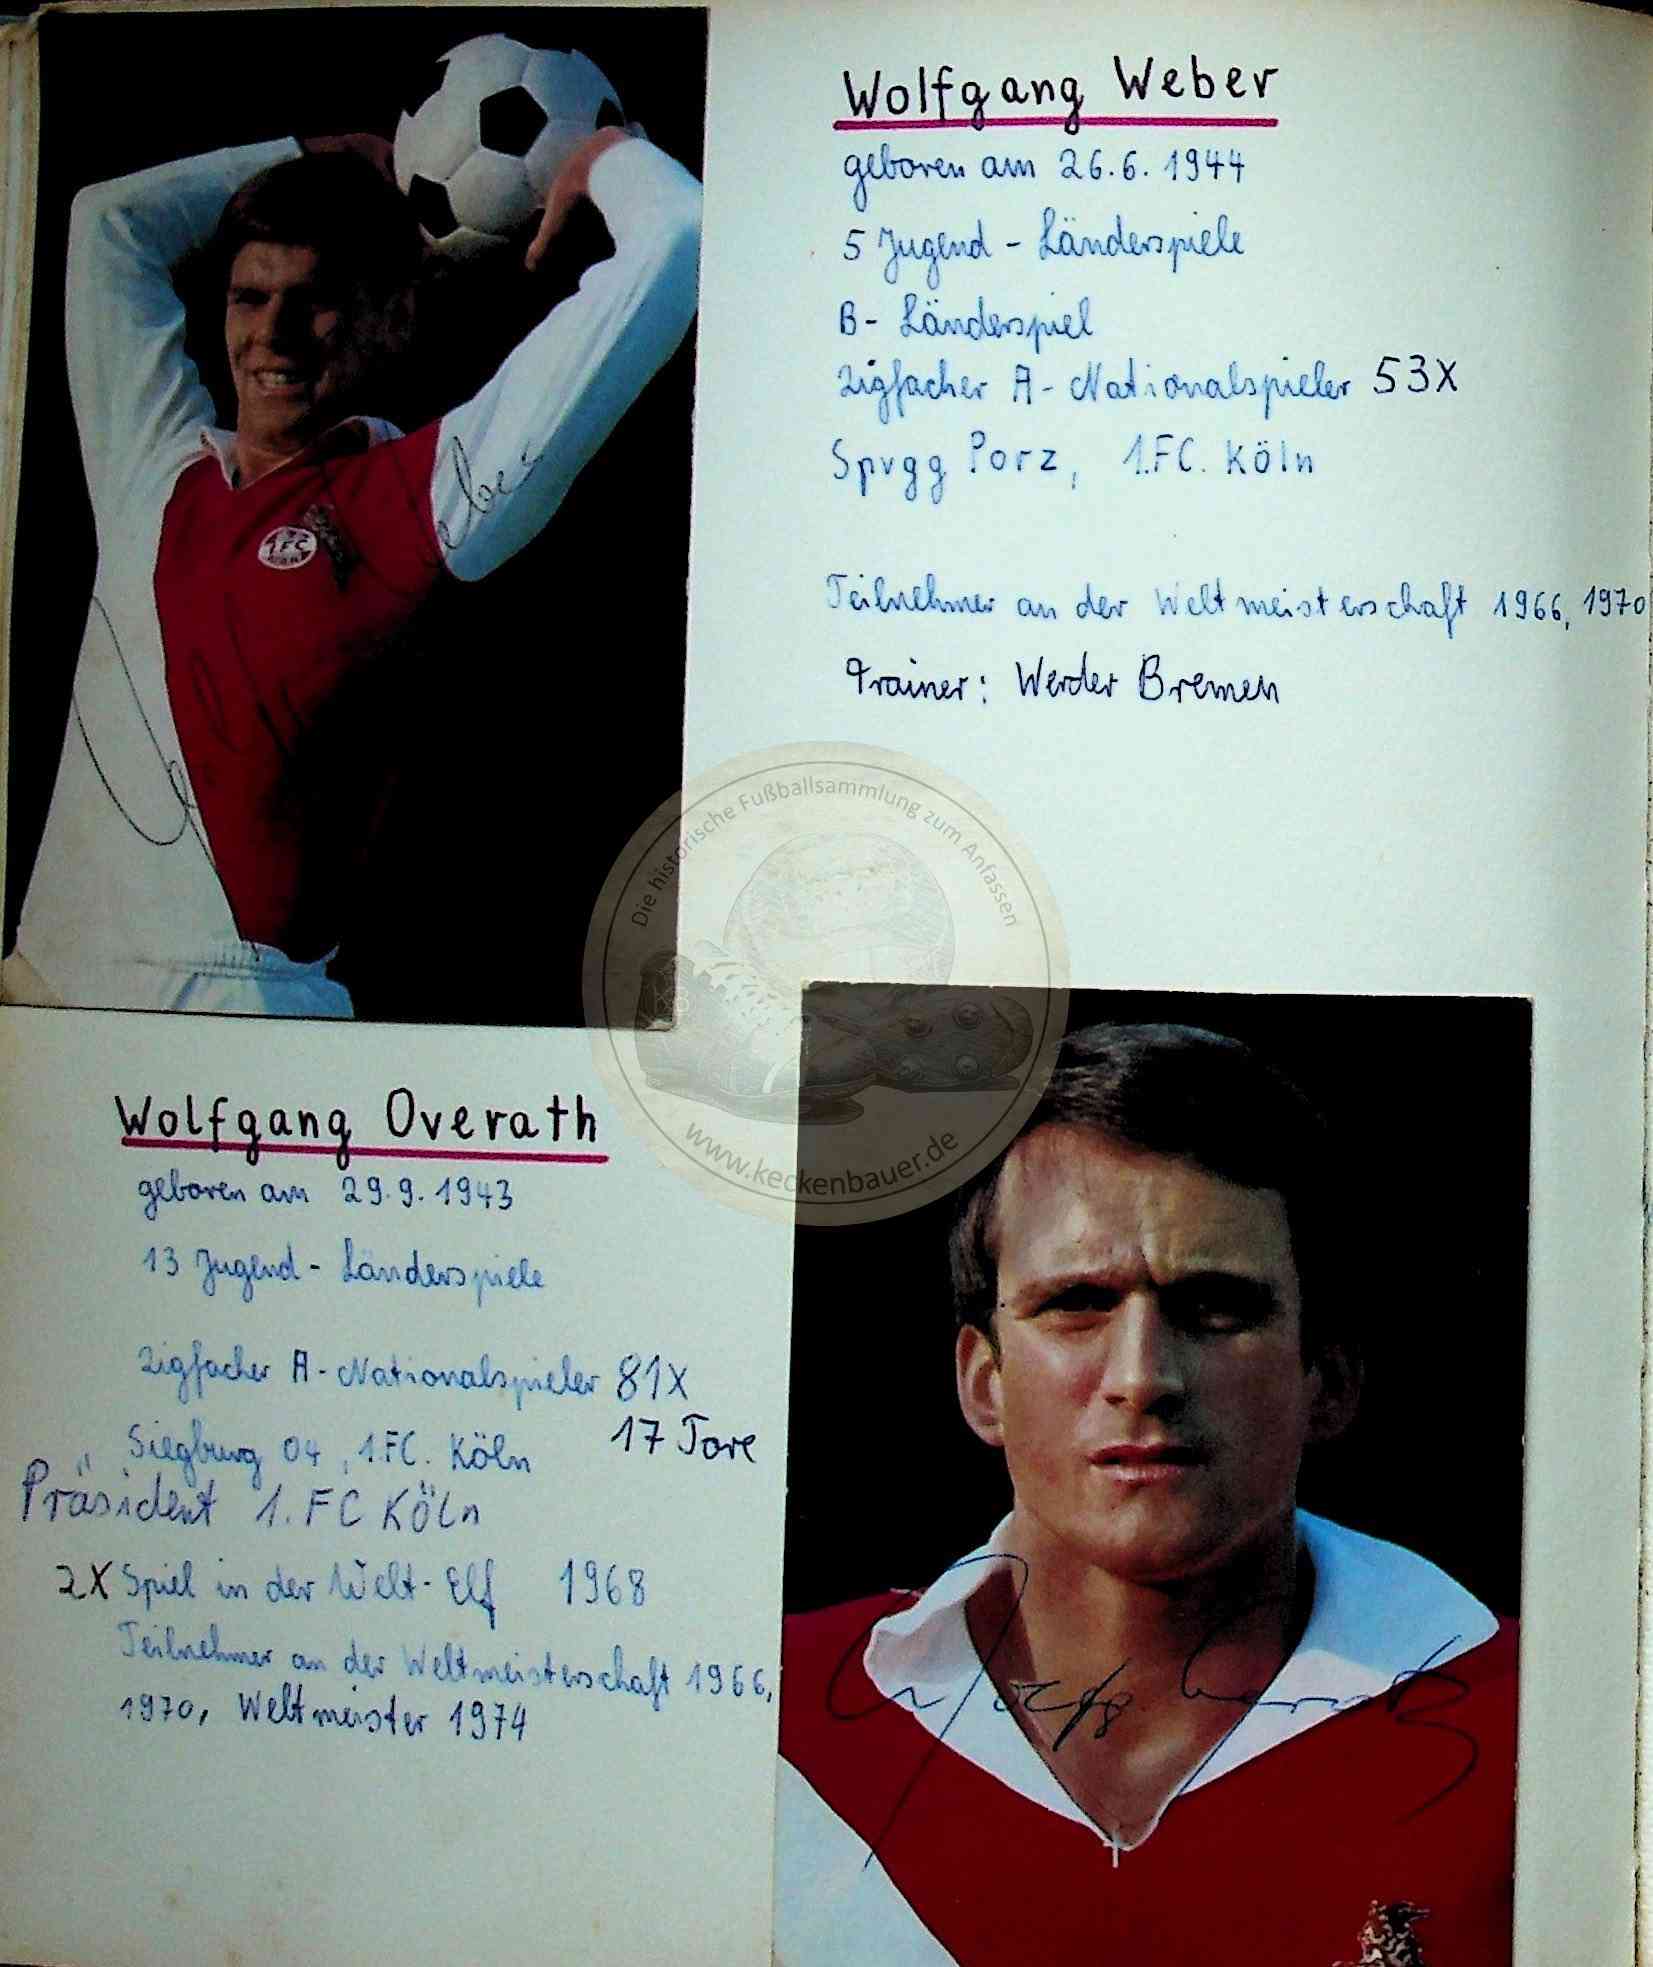 Wolfgang Weber
geboren am 26.6.1944
5 Jugend - Länderspiele
B - Länderspiel
zigfacher A - Nationalspieler 53X
Spvgg Porz, 1.FC. Köln
Teilnehmer an der Weltmeisterschaft 1966, 1970
Trainer: Werder Bremen
1.FC
Weber
Die historische Fußballsammlung zum Anfassen
www.keckenbauer.de
Wolfgang Overath
geboren am 29.9.1943
13 Jugend - Länderspiele
zigfacher A - Nationalspieler 81X
17 Tore
Siegburg 04, 1.FC. Köln
Präsident 1. FC Köln
2X Spiel in der Welt-Elf 1968
Teilnehmer an der Weltmeisterschaft 1966,
1970, Weltmeister 1974